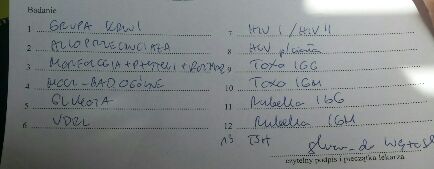 Badanie
1 GRUPA KRWI
2 ALLOPRZECIWCIAŁA
3 MORFOLOGIA + PŁYTKI + ROZMAZ
4 MOCZ - BAD OGÓLNE
5 GLUKOZA
6 VDRL
7 HIV I / HIV II
8 HCV
9 TOXO IGG
10 TOXO IGM
11 Rubella IGG
12 Rubella IGM
13 TSH
czytelny podpis i pieczątka lekarza